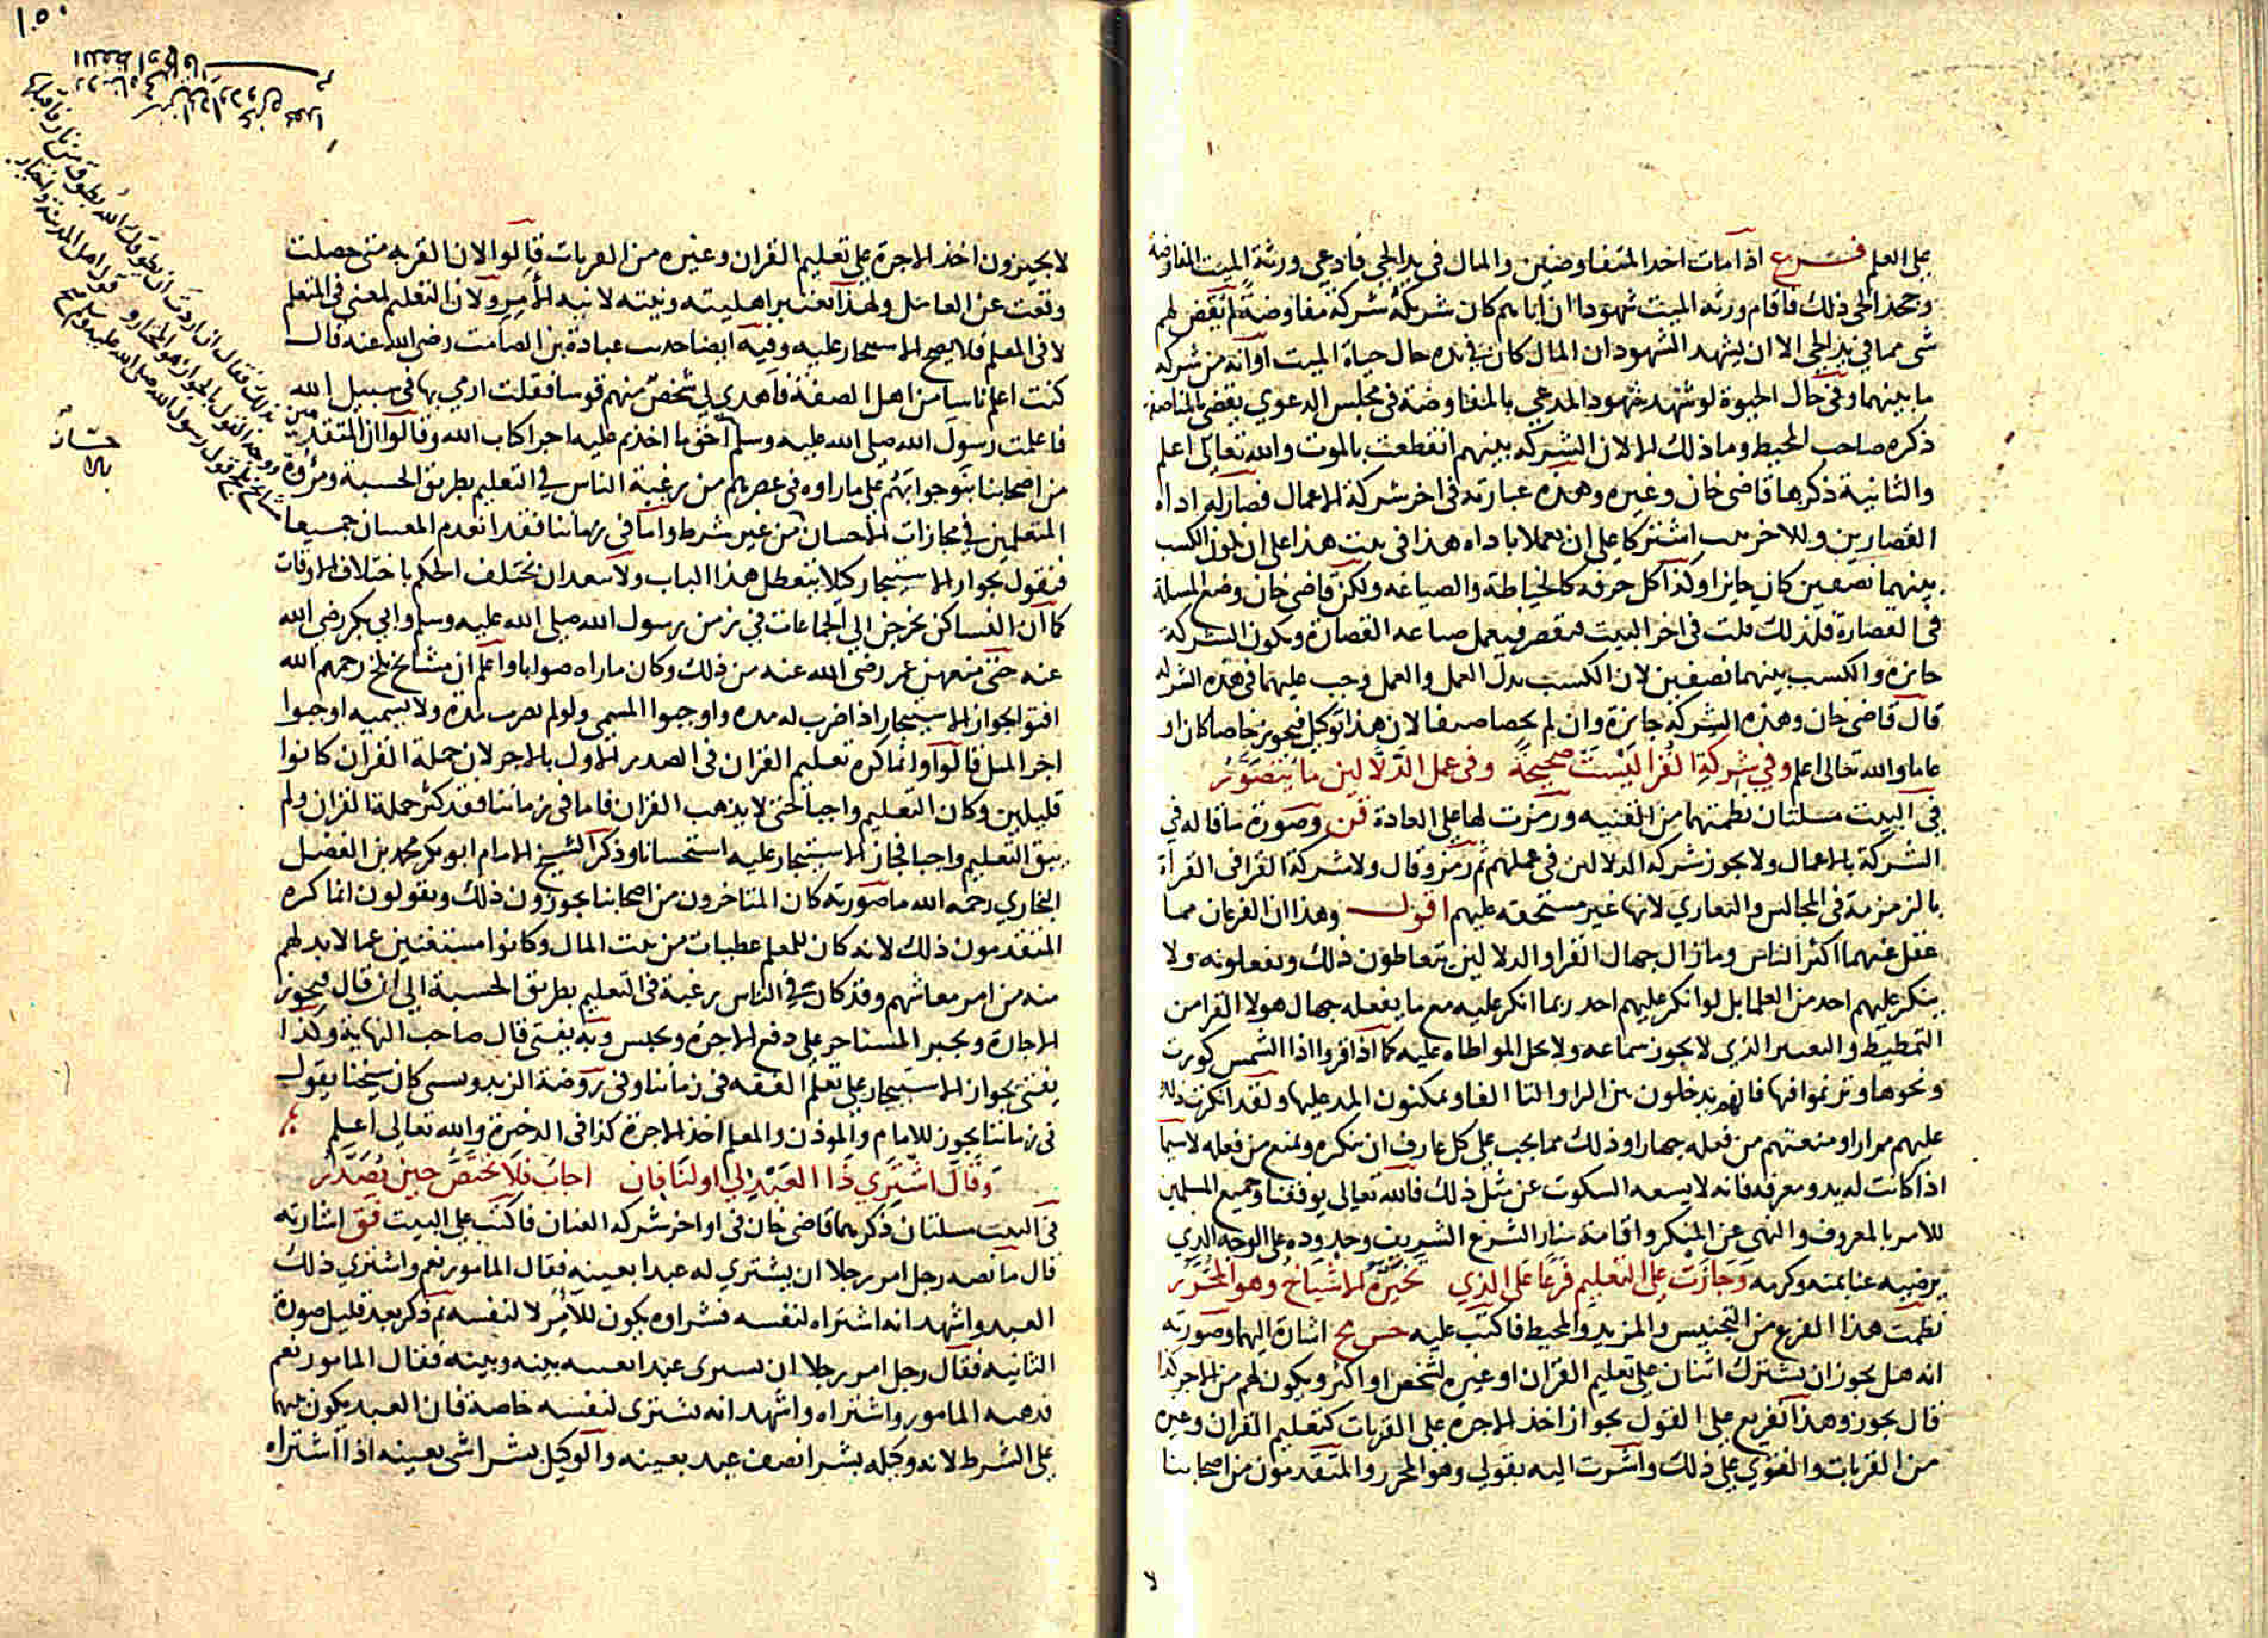 على العلم فرع اذا مات احد المتفاوضين والمال في يد الحي فادعى ورثة الميت المفاوضة
وجحد الحي ذلك فاقام ورثه الميت شهودا ان اباهم كان شريكه شركة مفاوضة لم يقض لهم
شى مما في يد الحي الا ان يشهد الشهود ان المال كان في يده حال حياة الميت او انه من شركه
ما بينهما وفي حال الحيوة لو شهد شهود المدعي بالمفاوضة في مجلس الدعوي يقضى بالمناصفة
ذكره صاحب المحيط وما ذلك الا لان الشركه بينهم انقطعت بالموت والله تعالى اعلم
والثانية ذكرها قاضى خان وغيره وهذه عبارته في اخر شركة الاعمال قصار له اداه
القصارين وللاخر بيت اشتركا على ان يعملا باداه هذا في بيت هذا على ان يكون الكسب
بينهما نصفين كان جايزا وكذا كل حرفه كالخياطة والصياغه ولكن قاضي خان وضع المسلة
في القصارة فلذلك قلت في اخر البيت فيعمل صباعه القصارة ويكون الشركة
جايزه والكسب بينهما نصفين لان الكسب بدل العمل والعمل وجب عليهما في هذه الشركه
قال قاضى خان وهذه الشركة جايزة وان لم يخصا صنفا لان هذا توكيل فيجوز خاصا كان او
عاما والله تعالى اعلم وفي شركة القرا ليست صحيحة وفي عمل الدلالين ما يتصور
في البيت مسلتان نظمتهما من القنيه ورمزت لها على العادة قن وصورة ما قاله في
الشركة بالاعمال ولا يجوز شركه الدلالين في عملهم ثم رمز وقال ولا شركة القرا في القراة
بالزمزمة في المجالس والتعازي لانها غير مستحقه عليهم اقول وهذان الفرعان مما
غفل عنهما اكثر الناس وما زال جهال القرا والدلالين يتعاطون ذلك ويفعلونه ولا
ينكر عليهم احد من العلما بل لو انكر عليهم احد ربما انكر عليه مع ما يفعله جهال هولا القرا من
التمطيط والتغيير الذي لا يجوز سماعه ولا يحل المواطاه عليه كما اذا قروا اذا الشمس كورت
ونحوها وترنموا فيها فانهم يدخلون بين الرا والتا الفا ويمكنون المد عليها ولقد انكرت ذلك
عليهم مرارا ومنعتهم من فعله جهارا وذلك مما يجب على كل عارف ان ينكره ويمنع من فعله لا سيما
اذا كانت له يد ومعرفه فانه لا يسعه السكوت عن مثل ذلك فالله تعالى يوفقنا وجميع المسلمين
للامر بالمعروف والنهى عن المنكر واقامة منار الشرع الشريف وحدوده على الوجه الذي
يرضيه عنا بمنه وكرمه وجازت على التعليم فرعا على الذي تخيره الاشياخ وهو المحرر
نظمت هذا الفرع من التجنيس والمزيد والمحيط فاكتب عليه جس مح اشارة اليهما وصورته
انه هل يجوز ان يشترك اثنان على تعليم القران او غيره لشخص او اكثر ويكون لهم من الاجر كذا
قال يجوز وهذا تفريع على القول بجواز اخذ الاجره على القربات كتعليم القران وغيره
من القربات والفتوي على ذلك واشرت اليه بقولي وهو المحرر والمتقدمون من اصحابنا
لا
١٥٠
لا يجيزون اخذ الاجرة على تعليم القران وغيره من القربات قالوا لان القربه متى حصلت
وقعت عن العامل ولهذا تعتبر اهليته ونيته لا نيه الآمر ولان التعليم لمعنى في المتعلم
لا في المعلم فلا يصح الاستيجار عليه وفيه ايضا حديث عبادة بن الصامت رضى الله عنه قال
كنت اعلم ناسا من اهل الصفة فاهدي لي شخص منهم قوسا فقلت ارمي بها في سبيل الله
فاعلمت رسول الله صلى الله عليه وسلم احق ما اخذتم عليه اجرا كتاب الله وقالوا ان المتقدمين
من اصحابنا بنوا جوابهم على ما راوه في عصرهم من رغبة الناس في التعليم بطريق الحسبة ومروة
المتعلمين في مجازات الاحسان من غير شرط واما في زماننا فقد انعدم المعنيان جميعا
فنقول بجواز الاستيجار كيلا يتعطل هذا الباب ولا يبعد ان يختلف الحكم باختلاف الاوقات
كما ان النسا كن يخرجن الي الجماعات في زمن رسول الله صلى الله عليه وسلم وابي بكر رضى الله
عنه حتى منعهن عمر رضى الله عنه من ذلك وكان ما راه صوابا واعلم ان مشايخ بلخ رحمهم الله
افتوا بجواز الاستيجار اذا ضرب له مده واوجبوا المسمي ولو لم يضرب مده ولا تسميه اوجبوا
اجر المثل قالوا وانما كره تعليم القران في الصدر الاول بالاجر لان حملة القران كانوا
قليلين وكان التعليم واجبا حتى لا يذهب القران فاما في زماننا فقد كثر حملة القران ولم
يبق التعليم واجبا فجاز الاستيجار عليه استحسانا وذكر الشيخ الامام ابو بكر محمد بن الفضل
البخاري رحمه الله ما صورته كان المتاخرون من اصحابنا يجوزون ذلك ويقولون انما كره
المتقدمون ذلك لانه كان للمعلم عطيات من بيت المال وكانوا مستغنين عما لا بد لهم
منه من امر معاشهم وقد كان في الناس رغبة في التعليم بطريق الحسبة الي ان قال فيجوز
الاجارة ويجبر المستاجر على دفع الاجرة ويحبس وبه يفتى قال صاحب النهاية وكذا
يفتى بجواز الاستيجار على تعلم الفقه في زماننا وفي روضة الزندويستي كان شيخنا يقول
في زماننا يجوز للامام والموذن والمعلم اخذ الاجرة كذا في الذخيرة والله تعالى اعلم
وقال اشتري ذا العبد لي او لنا فان اجاب فلا يختص حين يصدر
في البيت مسلتان ذكرهما قاضى خان في اواخر شركه العنان فاكتب على البيت فق اشارته
قال ما نصه رجل امر رجلا ان يشتري له عبدا بعينه فقال المامور نعم واشتري ذلك
العبد واشهد انه اشتراه لنفسه فشراوه يكون للآمر لا لنفسه ثم ذكر بعد قليل صورة
الثانيه فقال رجل امر رجلا ان يشترى عبدا بعينه بينه وبينه فقال المامور نعم
فذهب المامور واشتراه واشهد انه يشترى لنفسه خاصة فان العبد يكون بينهما
على الشرط لانه وكله بشرا نصف عبد بعينه والوكيل بشرا شى بعينه اذا اشتراه